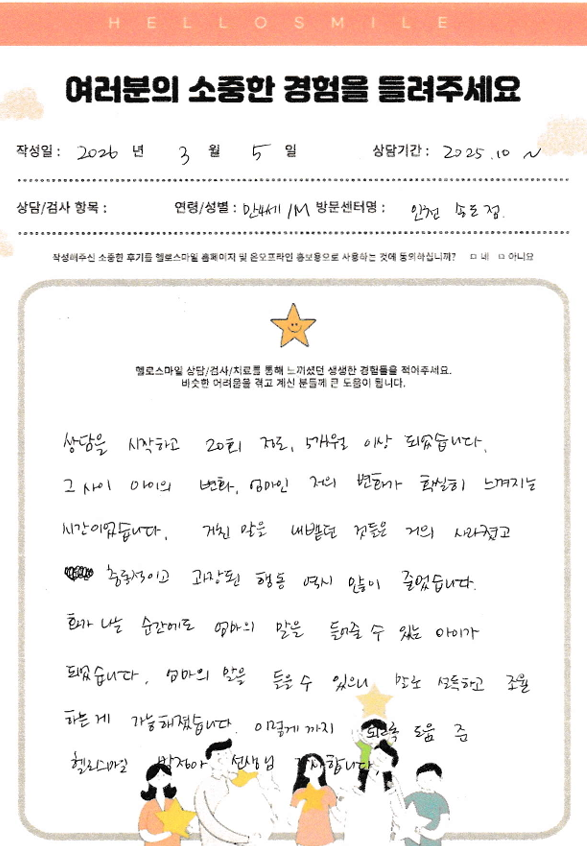 HELLOSMILE
여러분의 소중한 경험을 들려주세요
작성일 : 2026 년 3 월 5 일 상담기간 : 2025.10 ~
상담/검사 항목 : 연령/성별 : 만4세 /M 방문센터명 : 인천 송도점.
작성해주신 소중한 후기를 헬로스마일 홈페이지 및 온오프라인 홍보용으로 사용하는 것에 동의하십니까? ㅁ 네 ㅁ 아니요
헬로스마일 상담/검사/치료를 통해 느끼셨던 생생한 경험들을 적어주세요.
비슷한 어려움을 겪고 계신 분들께 큰 도움이 됩니다.
상담을 시작하고 20회 정도, 5개월 이상 되었습니다.
그 사이 아이의 변화, 엄마인 저의 변화가 확실히 느껴지는
시간이었습니다. 거친 말을 내뱉던 것들은 거의 사라졌고
충동적이고 과장된 행동 역시 많이 줄었습니다.
화가 나는 순간에도 엄마의 말을 들어줄 수 있는 아이가
되었습니다. 엄마의 말을 들을 수 있으니 말로 설득하고 조율
하는게 가능해졌습니다. 이렇게 까지 되도록 도움 준
헬로스마일 박정아 선생님 감사합니다.